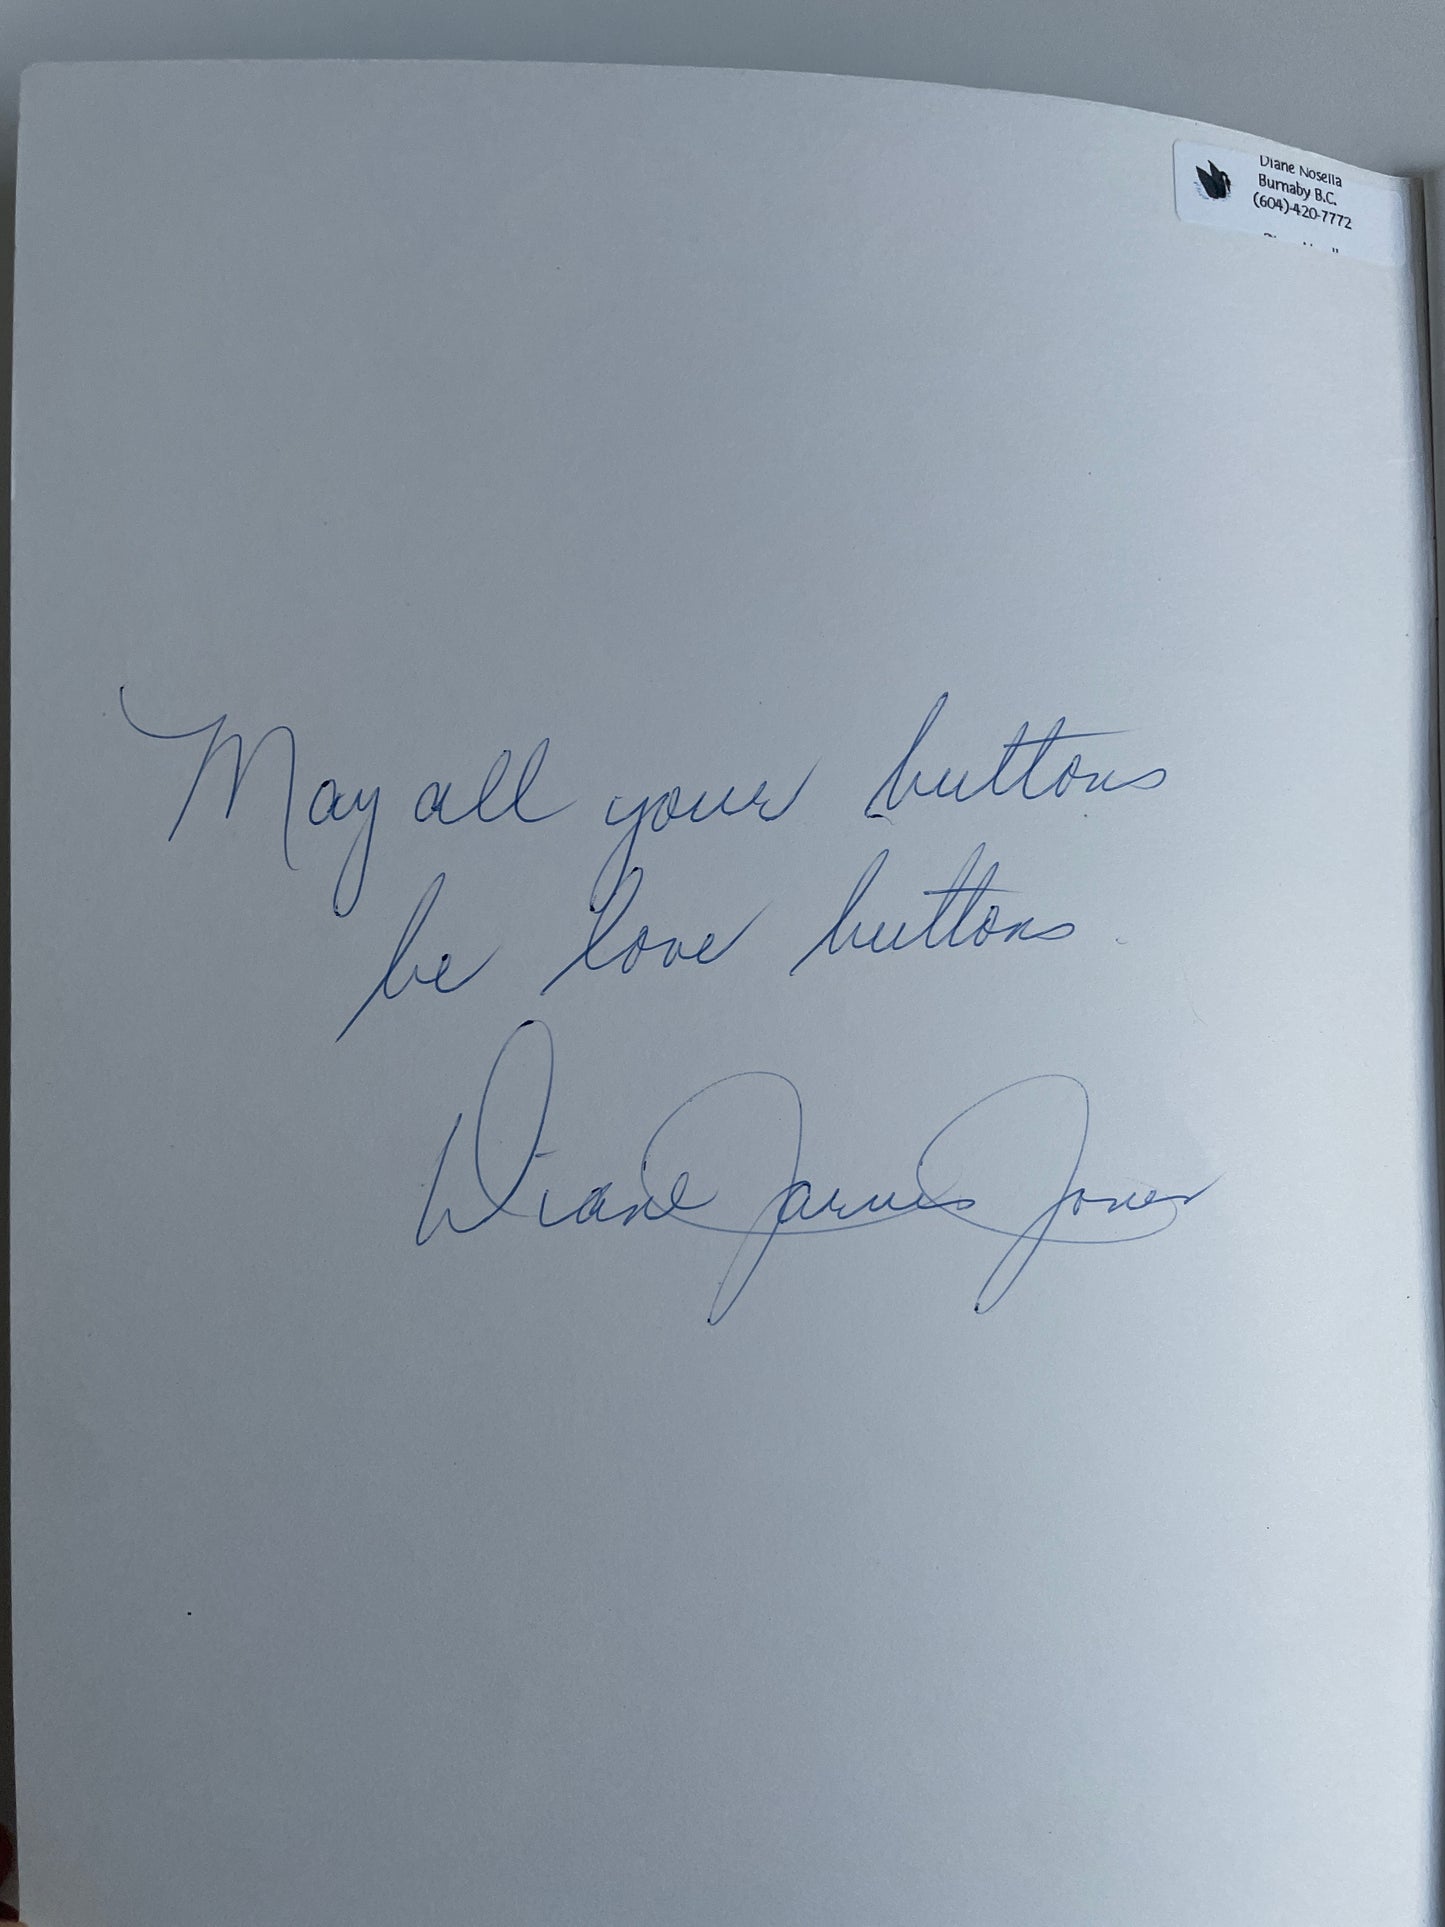 Diane Nosella
Burnaby B.C.
(604)-420-7772
May all your buttons
be love buttons
Diane Jarvis Jones